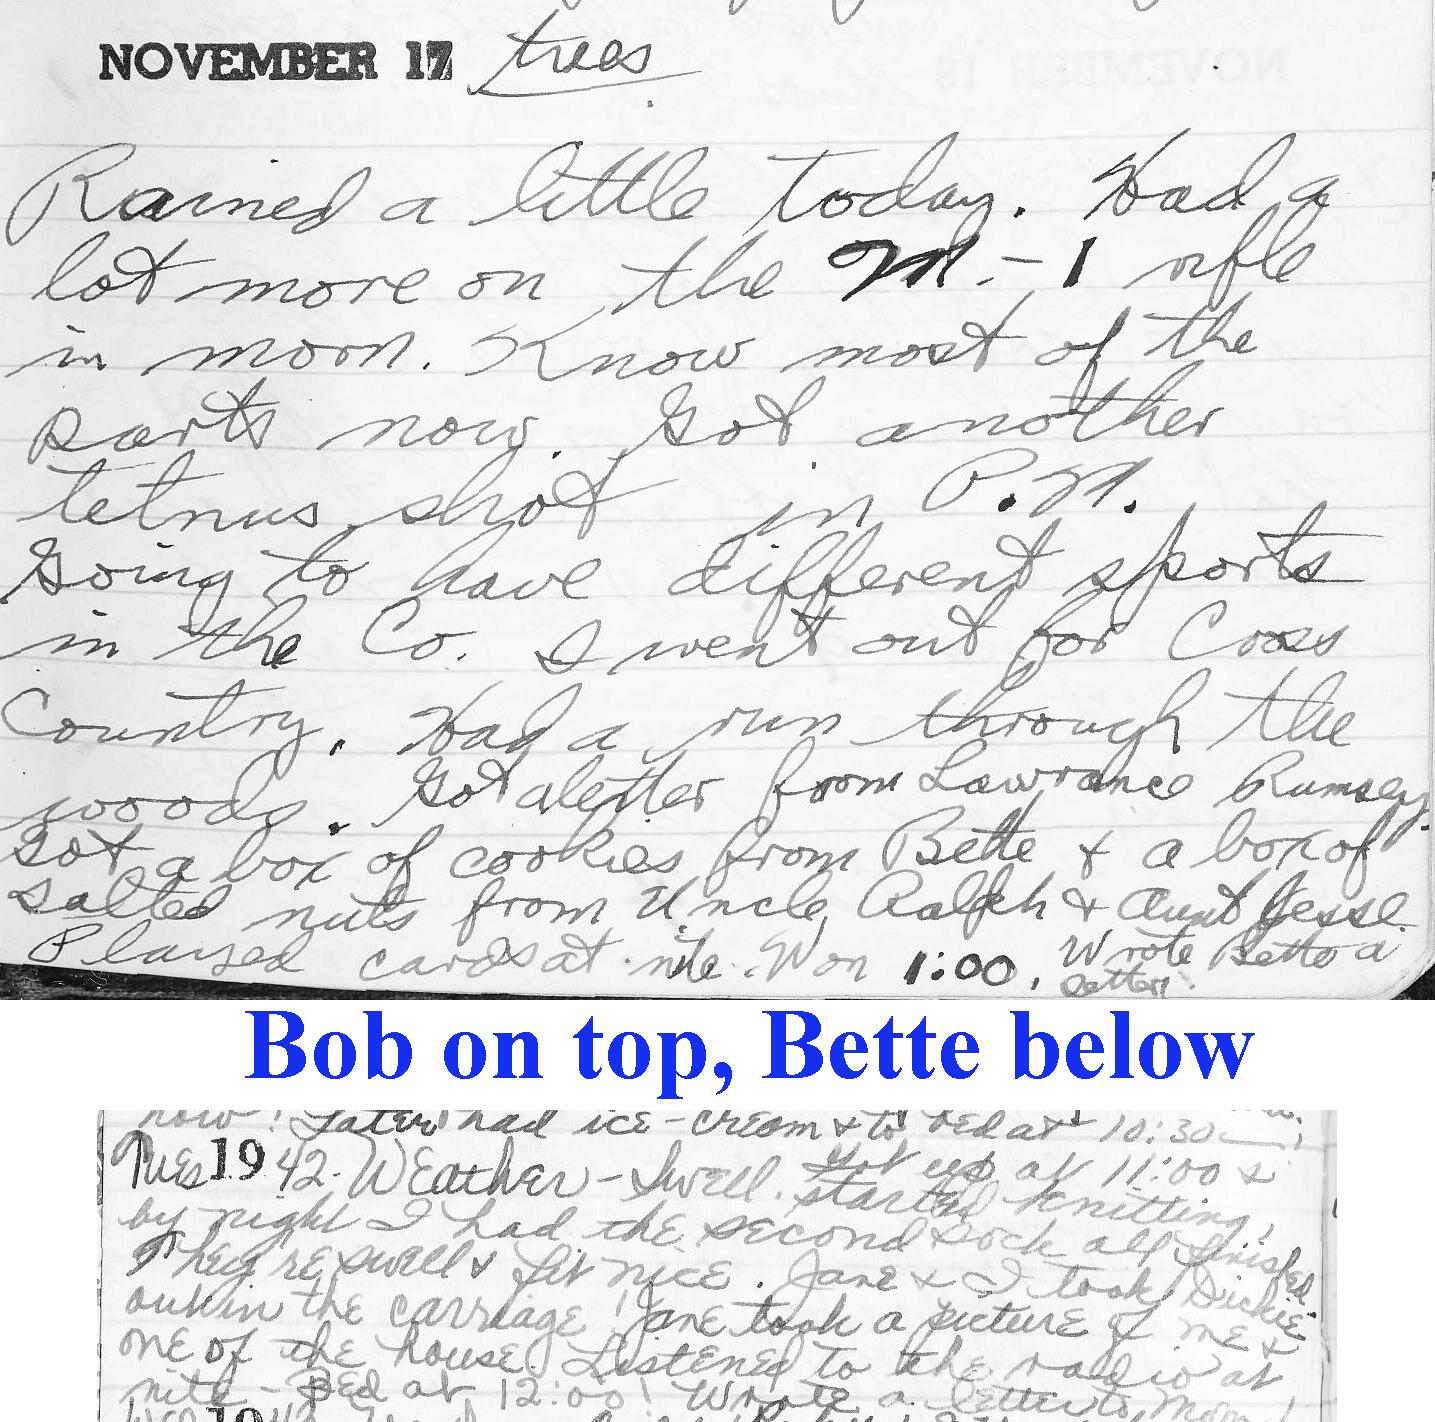 NOVEMBER 17 trees
Rained a little today. Had a
lot more on the M-1 rifle
in morn. Know most of the
parts now. Got another
tetnus shot in P.M.
Going to have different sports
in the Co. I went out for Coss
Country. Had a run through the
woods. Got a letter from Lawrance Rumsey.
Got a box of cookies from Bette & a box of
salted nuts from Uncle Ralph & Aunt Jesse.
Played cards at nite. Won 1:00. Wrote Bette a
letter.
Bob on top, Bette below
now! Later had ice-cream & to bed at 10:30
Tues 1942. Weather - Swell. Got up at 11:00 &
started knitting,
by night I had the second sock all finished.
They're swell & fit nice. Jane & I took Dickie
out in the carriage! Jane took a picture of me &
one of the house. Listened to the radio at
nite - Bed at 12:00! Wrote a letter to Mom!
19